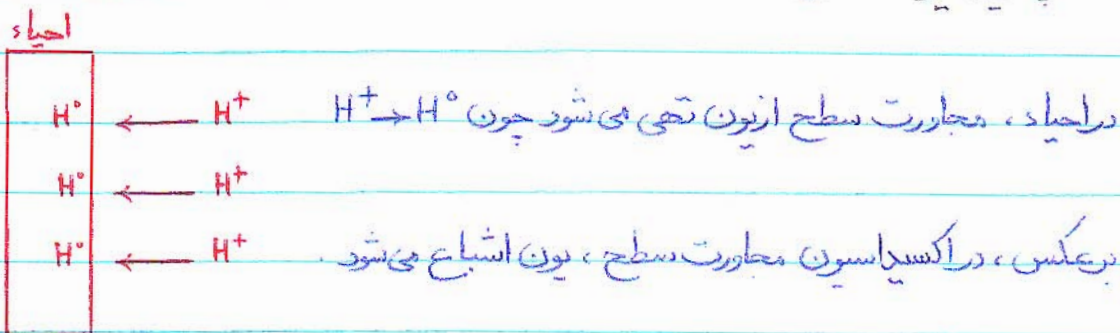 احیاء
H° ← H⁺ در احیاء، مجاورت سطح از یون تهی می شود چون H⁺→H°
H° ← H⁺
H° ← H⁺ برعکس، در اکسیداسیون مجاورت سطح، یون اشباع می شود.